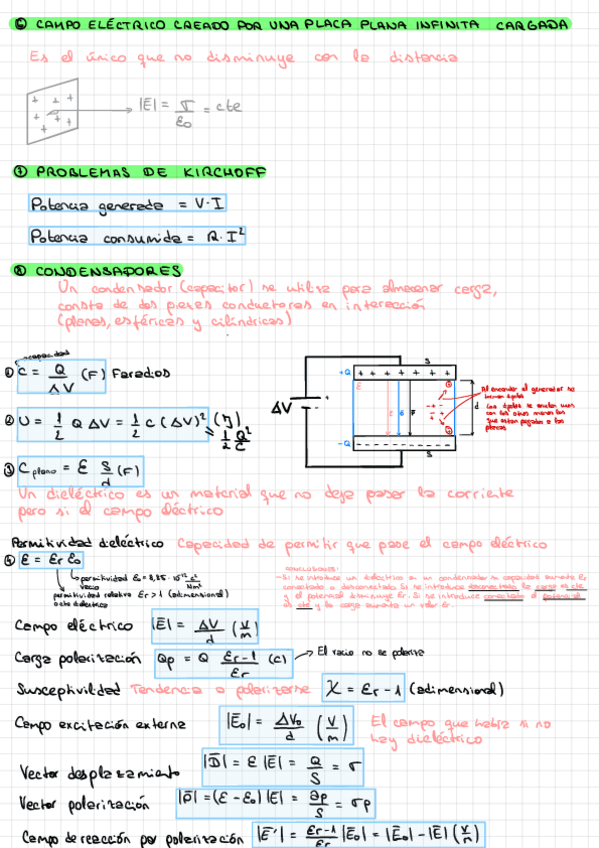 ⑥ CAMPO ELÉCTRICO CREADO POR UNA PLACA PLANA INFINITA CARGADA
Es el único que no disminuye con la distancia
|E| = σ/ε₀ = cte
⑦ PROBLEMAS DE KIRCHOFF
Potencia generada = V·I
Potencia consumida = R·I²
⑧ CONDENSADORES
Un condensador (capacitor) se utiliza para almacenar carga,
consta de dos piezas conductoras en interacción
(planas, esféricas y cilíndricas)
capacidad
① C = Q/ΔV (F) Faradios
② U = 1/2 Q ΔV = 1/2 C (ΔV)² (J)
= 1/2 Q²/C
③ C plano = ε S/d (F)
ΔV
+Q
-Q
S
S
d
E
Al encender el generador se
Un dieléctrico es un material que no deja pasar la corriente
pero si el campo eléctrico
Permitividad dieléctrico Capacidad de permitir que pase el campo eléctrico
④ ε = εr ε₀
permitividad ε₀ = 8,85·10⁻¹² C²/Nm²
vacío
permitividad relativa εr > 1 (adimensional)
o cte dieléctrica
CONCLUSIONES:
- Si se introduce un dieléctrico en un condensador su capacidad aumenta εr
conectado o desconectado. Si se introduce desconectado la carga es cte
y el potencial disminuye εr. Si se introduce conectado el potencial
es cte y la carga aumenta un valor εr.
Campo eléctrico |E| = ΔV/d (V/m)
Carga polarización Qp = Q εr-1/εr (C) → El vacío no se polariza
Susceptividad Tendencia a polarizarse χ = εr - 1 (adimensional)
Campo excitación externe |E₀| = ΔV₀/d (V/m) El campo que habría si no
hay dieléctrico
Vector desplazamiento |D| = ε |E| = Q/S = σ
Vector polarización |P| = (ε - ε₀) |E| = Qp/S = σp
Campo de reacción por polarización |E'| = εr-1/εr |E₀| = |E₀| - |E| (V/m)